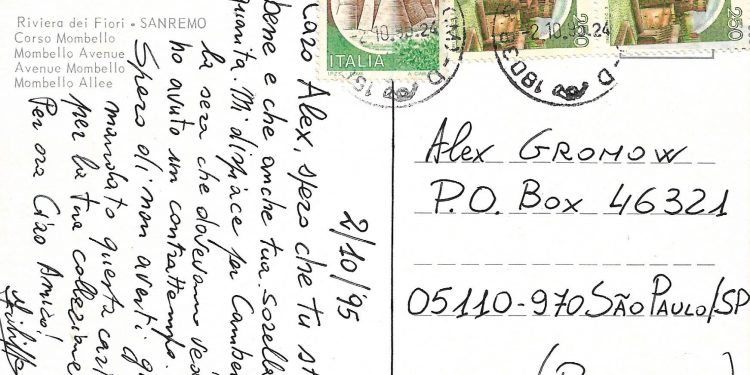 Riviera dei Fiori - SANREMO
Corso Mombello
Mombello Avenue
Avenue Mombello
Mombello Allee
ITALIA
250
250
-2.10.95.24
-2.10.95.24
2/10/'95
Caro Alex, spero che tu st
bene e che anche tua sorella
guarita. Mi dispiace per
la sera che dovevamo ved
ho avuto un contrattempo.
Spero di non averti g
mandato questa cart
per la tua collezione
Per ora Ciao Amico!
Alex GROMOW
P.O. Box 46321
05110-970 SÃO PAULO/SP